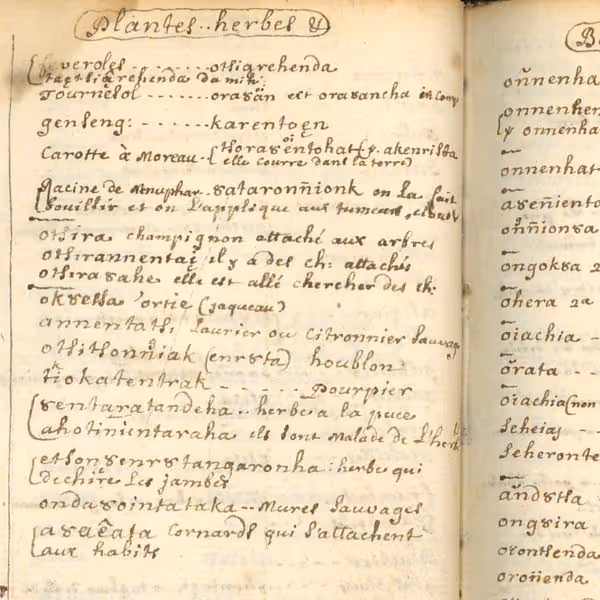 Plantes.. herbes &
feveroles ....... othiarehenda
Tournesol ------ orasän est orasancha in Comp
genseng: ------ karentoȩn
Carotte à Moreau. thorasentohat y. akenrista
elle Courre dans la terre)
Racine de Nenuphar. sataronñionk on la fait
bouillir et on l'applique aux tumeurs
othira champignon attaché aux arbres
othirannentaj il y a des ch: attachés
othirasahe elle est allé chercher des ch:
oksessa ortie (jaqueau)
annentaths laurier ou Citronnier sauvage
othithonniak (enrsta) houblon
tiokatentrak ------ Pourpier
sentaratandeha.. herbe a la puce
ahotinientaraha ils sont malade de l'herbe
ethonsenrstangaronha: herbe qui
dechire les jambes
ondasointataka -- Mures Sauvages
asaêata Cornards qui s'attachent
aux habits
oññenha
onnenhen
y onnenha
onnenhat
aseñienta
oññionsa
ongoksa 2
ohera 2a
oiachia -
orata ---
oiachia (non
seheiaj --
seheronte
andsta
ongsira
orontsenda
oroñenda